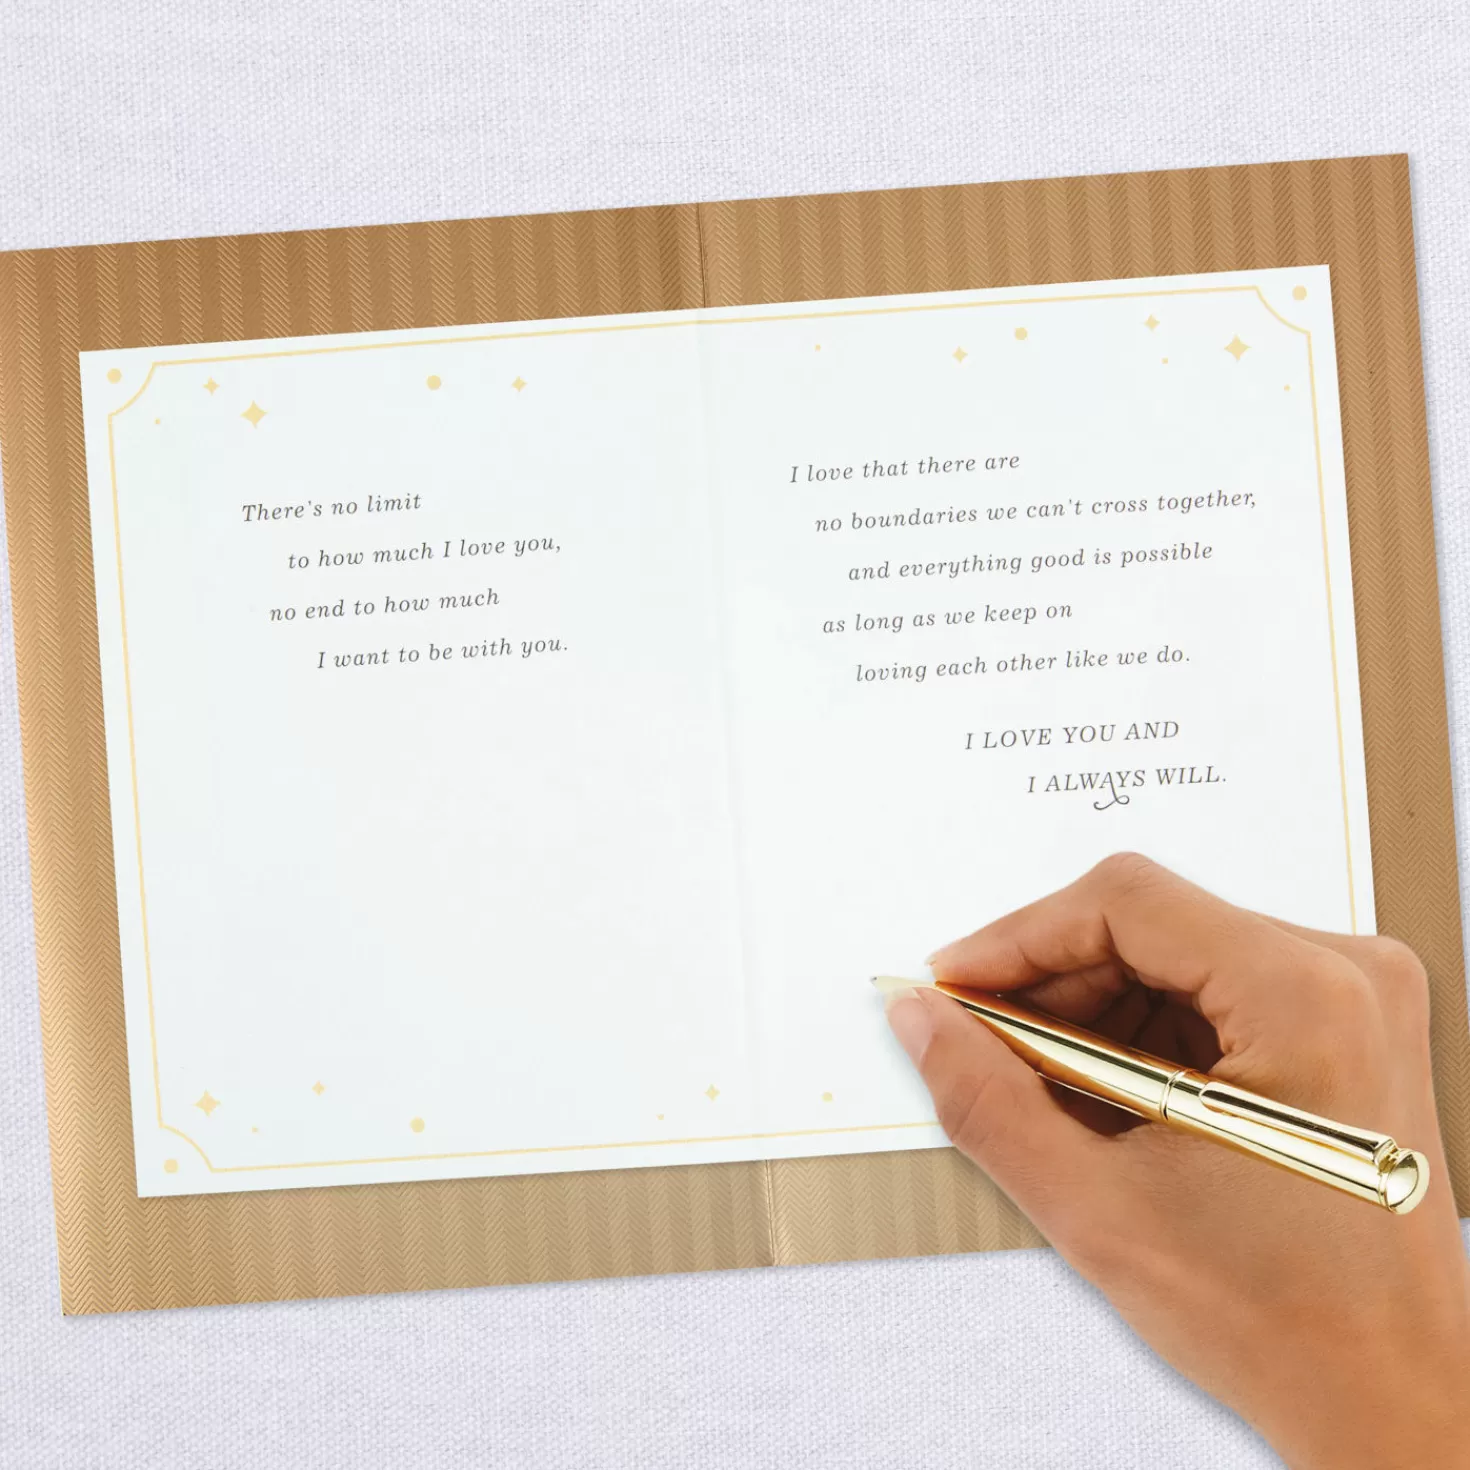 There's no limit
to how much I love you,
no end to how much
I want to be with you.
I love that there are
no boundaries we can't cross together,
and everything good is possible
as long as we keep on
loving each other like we do.
I LOVE YOU AND
I ALWAYS WILL.